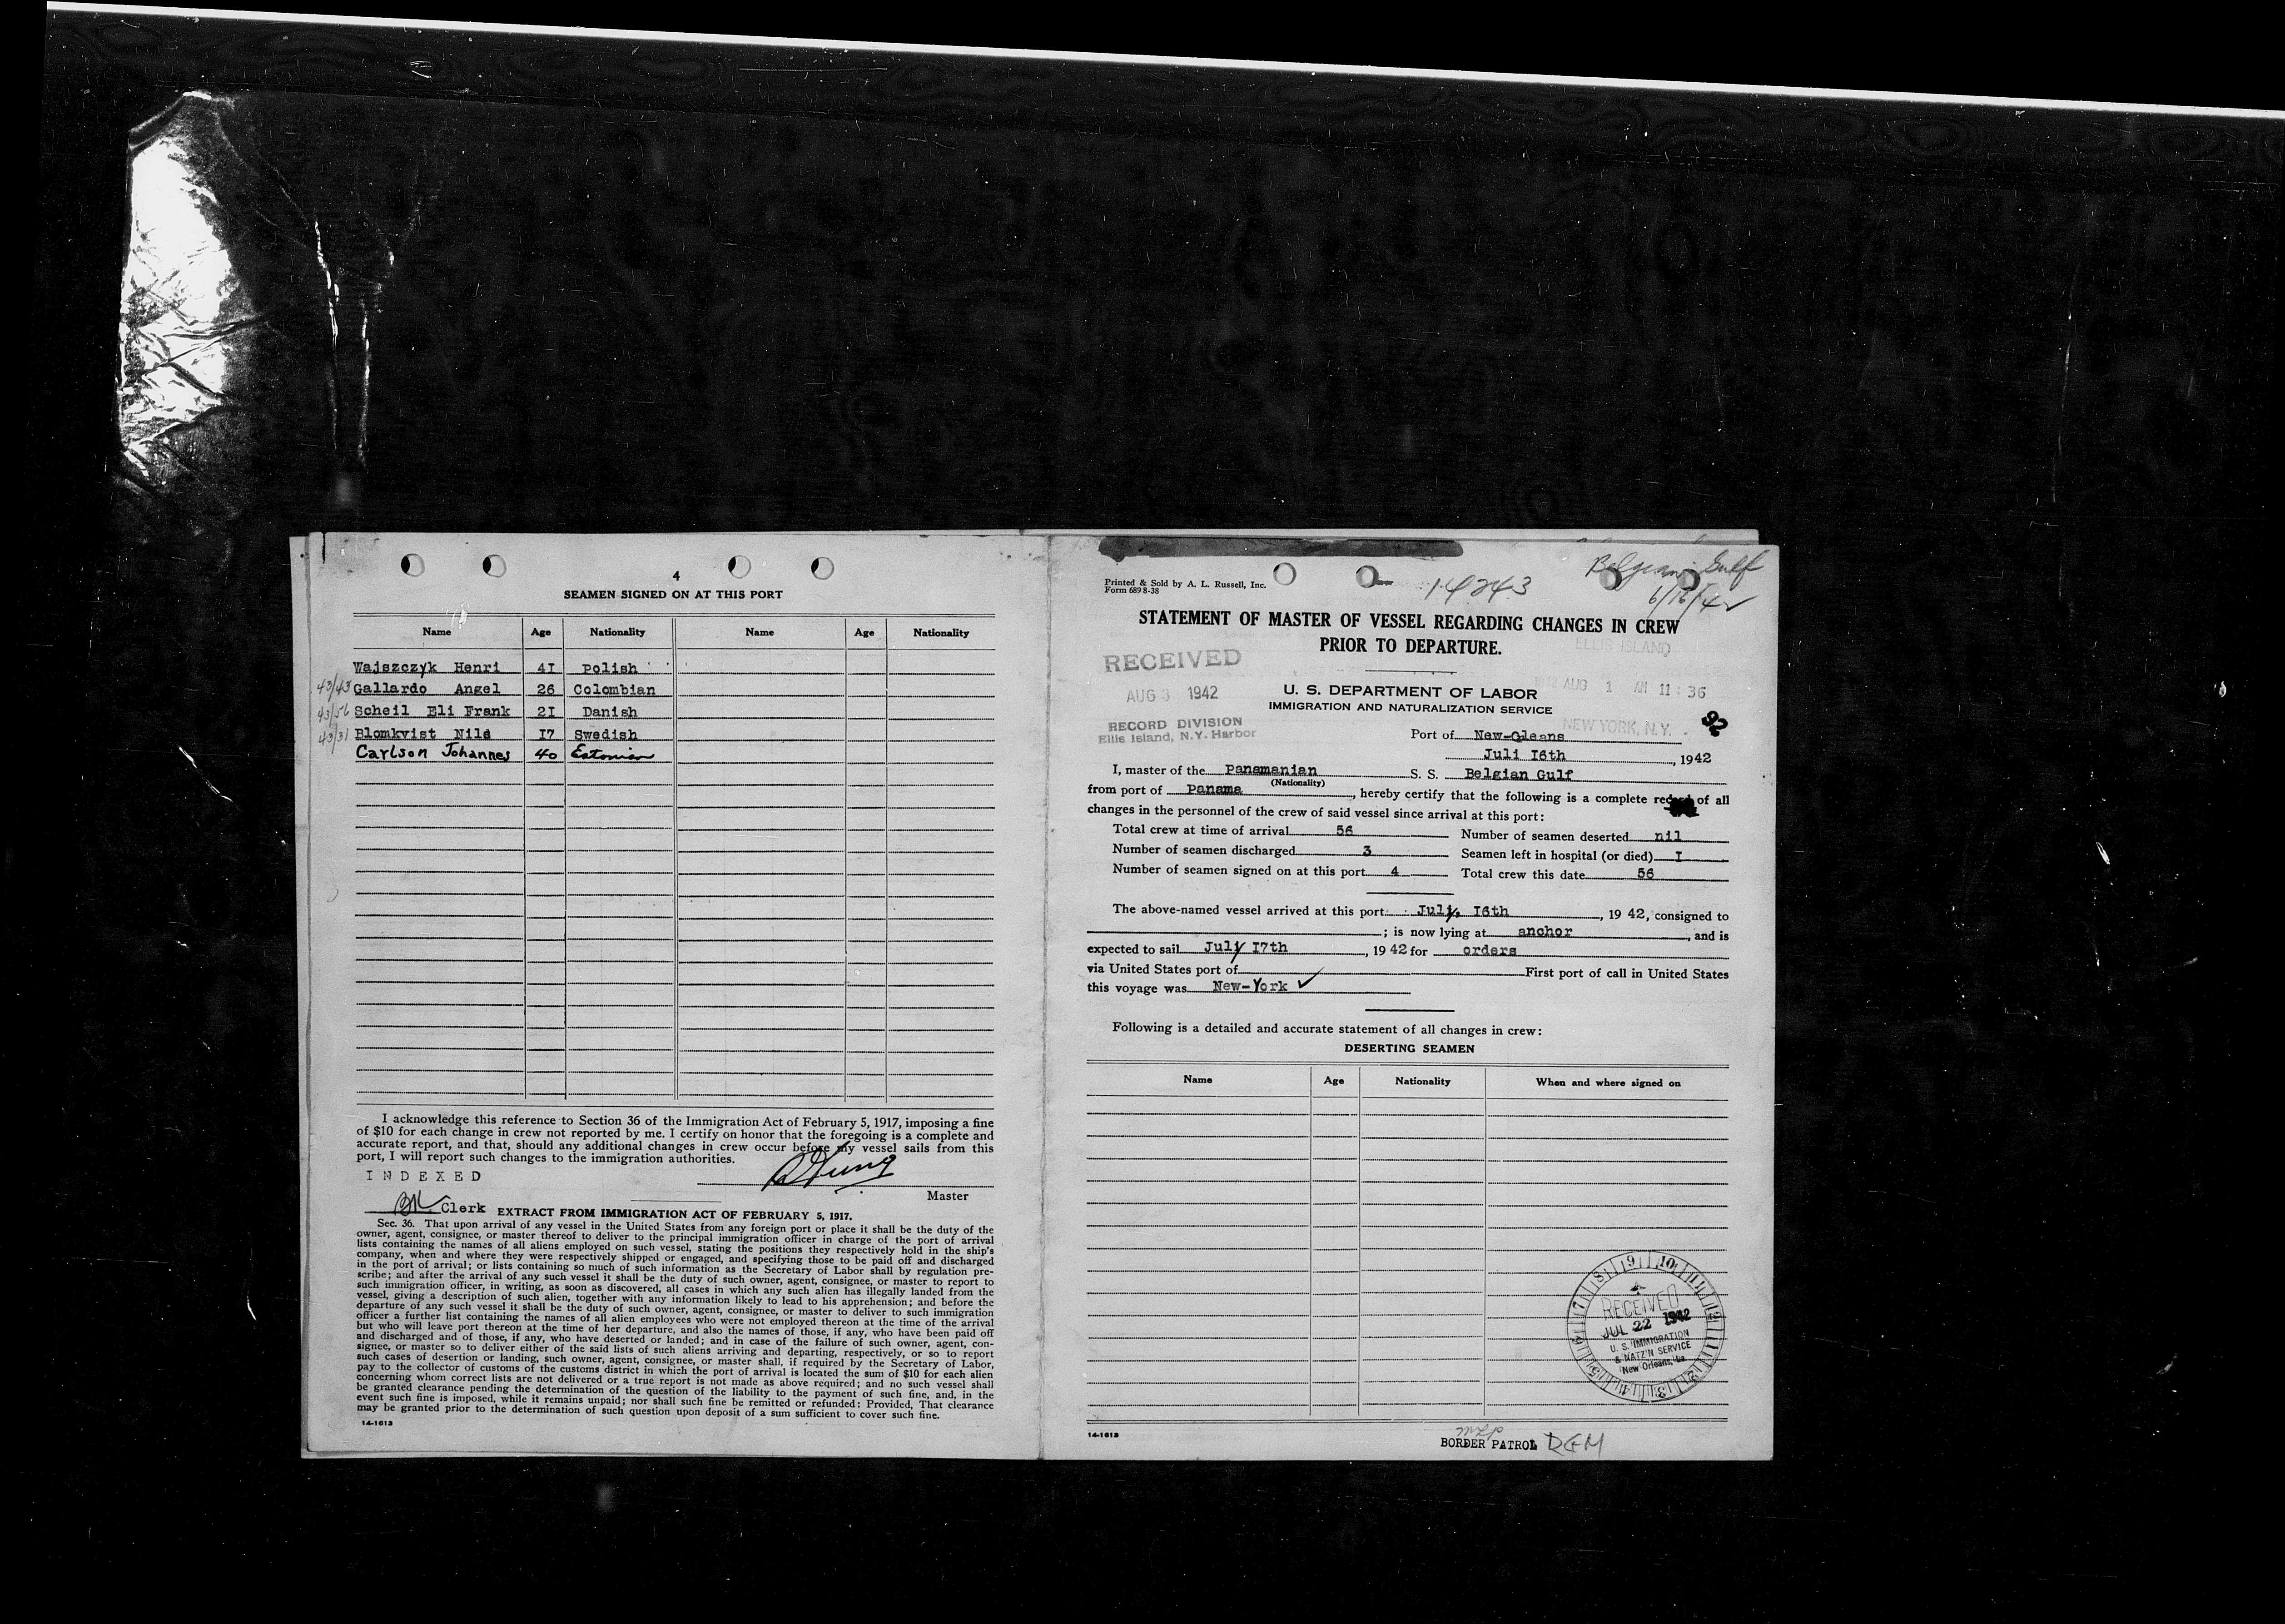 4
SEAMEN SIGNED ON AT THIS PORT
Name Age Nationality Name Age Nationality
Wajszczyk Henri 4I Polish
43/43 Gallardo Angel 26 Colombian
43/56 Scheil Eli Frank 2I Danish
43/31 Blomkvist Nils I7 Swedish
Carlson Johannes 40 Estonian
I acknowledge this reference to Section 36 of the Immigration Act of February 5, 1917, imposing a fine
of $10 for each change in crew not reported by me. I certify on honor that the foregoing is a complete and
accurate report, and that, should any additional changes in crew occur before my vessel sails from this
port, I will report such changes to the immigration authorities.
INDEXED
Master
Clerk
EXTRACT FROM IMMIGRATION ACT OF FEBRUARY 5, 1917.
Sec. 36. That upon arrival of any vessel in the United States from any foreign port or place it shall be the duty of the
owner, agent, consignee, or master thereof to deliver to the principal immigration officer in charge of the port of arrival
lists containing the names of all aliens employed on such vessel, stating the positions they respectively hold in the ship's
company, when and where they were respectively shipped or engaged, and specifying those to be paid off and discharged
in the port of arrival; or lists containing so much of such information as the Secretary of Labor shall by regulation pre-
scribe; and after the arrival of any such vessel it shall be the duty of such owner, agent, consignee, or master to report to
such immigration officer, in writing, as soon as discovered, all cases in which any such alien has illegally landed from the
vessel, giving a description of such alien, together with any information likely to lead to his apprehension; and before the
departure of any such vessel it shall be the duty of such owner, agent, consignee, or master to deliver to such immigration
officer a further list containing the names of all alien employees who were not employed thereon at the time of the arrival
but who will leave port thereon at the time of her departure, and also the names of those, if any, who have been paid off
and discharged and of those, if any, who have deserted or landed; and in case of the failure of such owner, agent, con-
signee, or master so to deliver either of the said lists of such aliens arriving and departing, respectively, or so to report
such cases of desertion or landing, such owner, agent, consignee, or master shall, if required by the Secretary of Labor,
pay to the collector of customs of the customs district in which the port of arrival is located the sum of $10 for each alien
concerning whom correct lists are not delivered or a true report is not made as above required; and no such vessel shall
be granted clearance pending the determination of the question of the liability to the payment of such fine, and, in the
event such fine is imposed, while it remains unpaid; nor shall such fine be remitted or refunded: Provided, That clearance
may be granted prior to the determination of such question upon deposit of a sum sufficient to cover such fine.
14-1613
Belgian Gulf
6/16/42
Printed & Sold by A. L. Russell, Inc.
Form 689 8-38
14243
STATEMENT OF MASTER OF VESSEL REGARDING CHANGES IN CREW
PRIOR TO DEPARTURE.
ELLIS ISLAND
RECEIVED
AUG 3 1942
RECORD DIVISION
Ellis Island, N.Y. Harbor
U. S. DEPARTMENT OF LABOR
IMMIGRATION AND NATURALIZATION SERVICE
AUG 1 AM 11:36
NEW YORK, N.Y.
92
Port of New-Oleans
Juli I6th, 1942
I, master of the Panamanian S. S. Belgian Gulf
(Nationality)
from port of Panama, hereby certify that the following is a complete record of all
changes in the personnel of the crew of said vessel since arrival at this port:
Total crew at time of arrival 56 Number of seamen deserted nil
Number of seamen discharged 3 Seamen left in hospital (or died) I
Number of seamen signed on at this port 4 Total crew this date 56
The above-named vessel arrived at this port July, I6th, 1942, consigned to
; is now lying at anchor, and is
expected to sail July I7th, 1942 for orders
via United States port of First port of call in United States
this voyage was New-York ✓
Following is a detailed and accurate statement of all changes in crew:
DESERTING SEAMEN
Name Age Nationality When and where signed on
7 8 9 10 11 12 1 2 3 4 5 6
RECEIVED
JUL 22 1942
U. S. IMMIGRATION
& NATZ'N SERVICE
New Orleans, La.
14-1613
BORDER PATROL